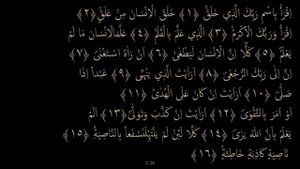 اِقْرَأْ بِاسْمِ رَبِّكَ الَّذِي خَلَقَۚ ﴿١﴾ خَلَقَ الْاِنْسَانَ مِنْ عَلَقٍۚ ﴿٢﴾
اِقْرَأْ وَرَبُّكَ الْاَكْرَمُۙ ﴿٣﴾ اَلَّذِي عَلَّمَ بِالْقَلَمِۙ ﴿٤﴾ عَلَّمَ الْاِنْسَانَ مَا لَمْ
يَعْلَمْۜ ﴿٥﴾ كَلَّٓا اِنَّ الْاِنْسَانَ لَيَطْغٰىۙ ﴿٦﴾ اَنْ رَاٰهُ اسْتَغْنٰىۜ ﴿٧﴾
اِنَّ اِلٰى رَبِّكَ الرُّجْعٰىۜ ﴿٨﴾ اَرَاَيْتَ الَّذِي يَنْهٰىۙ ﴿٩﴾ عَبْداً اِذَا
صَلّٰىۜ ﴿١٠﴾ اَرَاَيْتَ اِنْ كَانَ عَلَى الْهُدٰىۙ ﴿١١﴾
اَوْ اَمَرَ بِالتَّقْوٰىۜ ﴿١٢﴾ اَرَاَيْتَ اِنْ كَذَّبَ وَتَوَلّٰىۜ ﴿١٣﴾ اَلَمْ
يَعْلَمْ بِاَنَّ اللّٰهَ يَرٰىۜ ﴿١٤﴾ كَلَّا لَئِنْ لَمْ يَنْتَهِ لَنَسْفَعاً بِالنَّاصِيَةِۙ ﴿١٥﴾
نَاصِيَةٍ كَاذِبَةٍ خَاطِئَةٍۚ ﴿١٦﴾